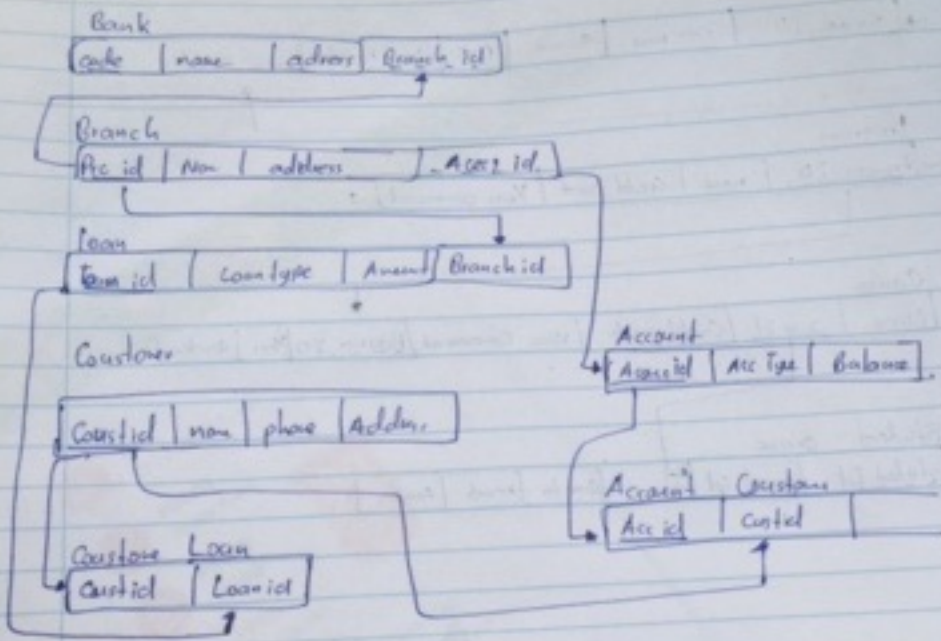 Bank
code | name | adress | Branch id
Branch
Brc id | Nam | address | Acc id
Loan
Loan id | Loan type | Amount | Branch id
Coustomer
Coustid | nam | phone | Addres
Account
Account id | Acc Type | Balance
Account Coustome
Acc id | Custid
Coustome Loan
Custid | Loan id